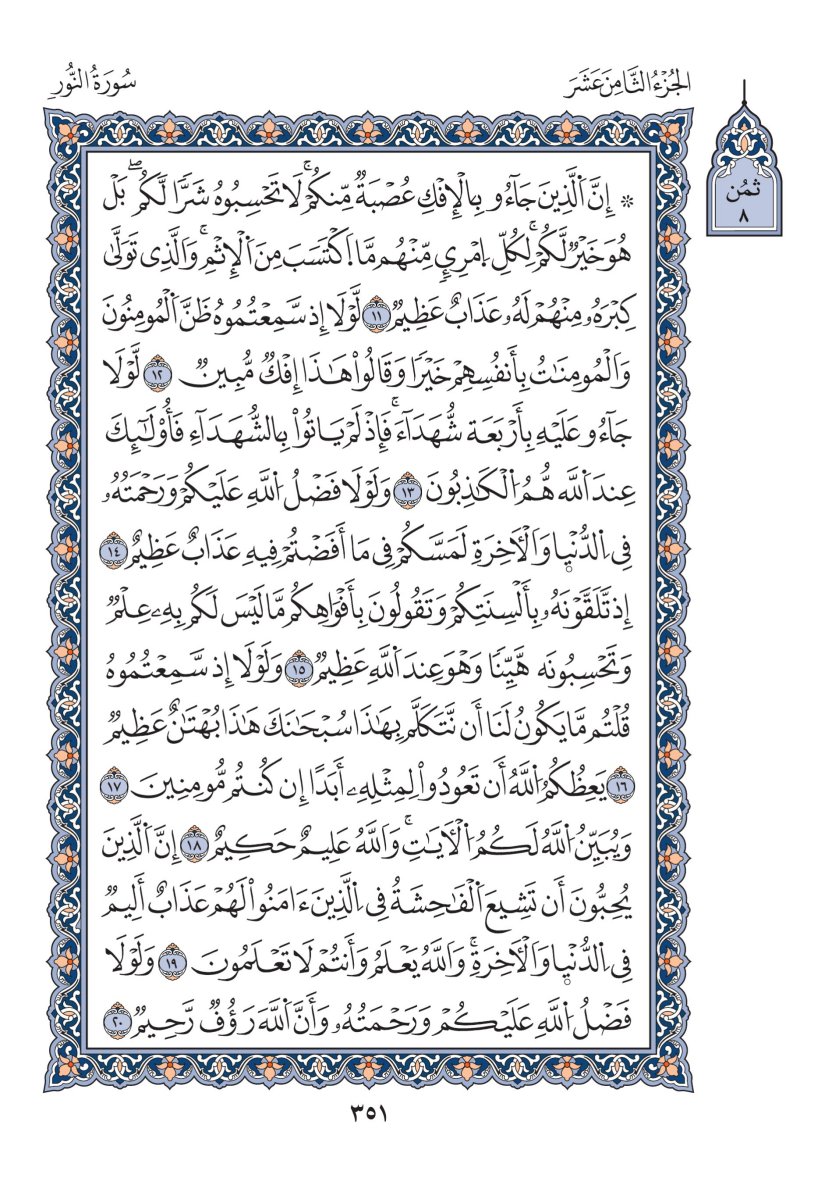 الجُزْءُ الثَّامِنَ عَشَرَ
سُورَةُ النُّورِ
ثُمُن
٨
۞ إِنَّ اَلَّذِينَ جَآءُو بِالْإِفْكِ عُصْبَةٌ مِّنكُمْۚ لَا تَحْسِبُوهُ شَرّٗا لَّكُمۖ بَلْ
هُوَ خَيْرٌ لَّكُمْۚ لِكُلِّ اِمْرِيٕٖ مِّنْهُم مَّا اَكْتَسَبَ مِنَ اَلْإِثْمِۚ وَالَّذِي تَوَلَّىٰ
كِبْرَهُۥ مِنْهُمْ لَهُۥ عَذَابٌ عَظِيمٌ ١١ لَّوْلَا إِذ سَّمِعْتُمُوهُ ظَنَّ اَلْمُومِنُونَ
وَالْمُومِنَٰتُ بِأَنفُسِهِمْ خَيْرٗا وَقَالُواْ هَٰذَا إِفْكٌ مُّبِينٌ ١٢ لَّوْلَا
جَآءُو عَلَيْهِ بِأَرْبَعَة شُّهَدَآءَۚ فَإِذْ لَمْ يَاتُواْ بِالشُّهَدَآءِ فَأُوْلَٰٓئِكَ
عِندَ اَللَّه هُّمُ اُلْكَٰذِبُونَ ١٣ وَلَوْلَا فَضْلُ اُللَّهِ عَلَيْكُمْ وَرَحْمَتُهُۥ
فِي اِلدُّنْيا وَالْأٓخِرَةِ لَمَسَّكُمْ فِي مَا أَفَضْتُمْ فِيهِ عَذَابٌ عَظِيمٌ ١٤
إِذ تَّلَقَّوْنَهُۥ بِأَلْسِنَتِكُمْ وَتَقُولُونَ بِأَفْوَاهِكُم مَّا لَيْسَ لَكُم بِهِۦ عِلْمٌ
وَتَحْسِبُونَه هَّيِّنٗا وَهْوَ عِندَ اَللَّهِ عَظِيمٌ ١٥ وَلَوْلَا إِذ سَّمِعْتُمُوهُ
قُلْتُم مَّا يَكُونُ لَنَا أَن نَّتَكَلَّم بِهَٰذَا سُبْحَٰنَكَ هَٰذَا بُهْتَٰنٌ عَظِيمٌ
١٦ يَعِظُكُمُ اُللَّهُ أَن تَعُودُواْ لِمِثْلِهِۦ أَبَدًا إِن كُنتُم مُّومِنِينَ ١٧
وَيُبَيِّنُ اُللَّهُ لَكُمُ اُلْأٓيَٰتِۚ وَاللَّهُ عَلِيمٌ حَكِيمٌ ١٨ إِنَّ اَلَّذِينَ
يُحِبُّونَ أَن تَشِيعَ اَلْفَٰحِشَةُ فِي اِلَّذِينَ ءَامَنُواْ لَهُمْ عَذَابٌ أَلِيمٌ
فِي اِلدُّنْيا وَالْأٓخِرَةِۚ وَاللَّهُ يَعْلَمُ وَأَنتُمْ لَا تَعْلَمُونَ ١٩ وَلَوْلَا
فَضْلُ اُللَّهِ عَلَيْكُمْ وَرَحْمَتُهُۥ وَأَنَّ اَللَّهَ رَؤُفٌ رَّحِيمٌ ٢٠
٣٥١